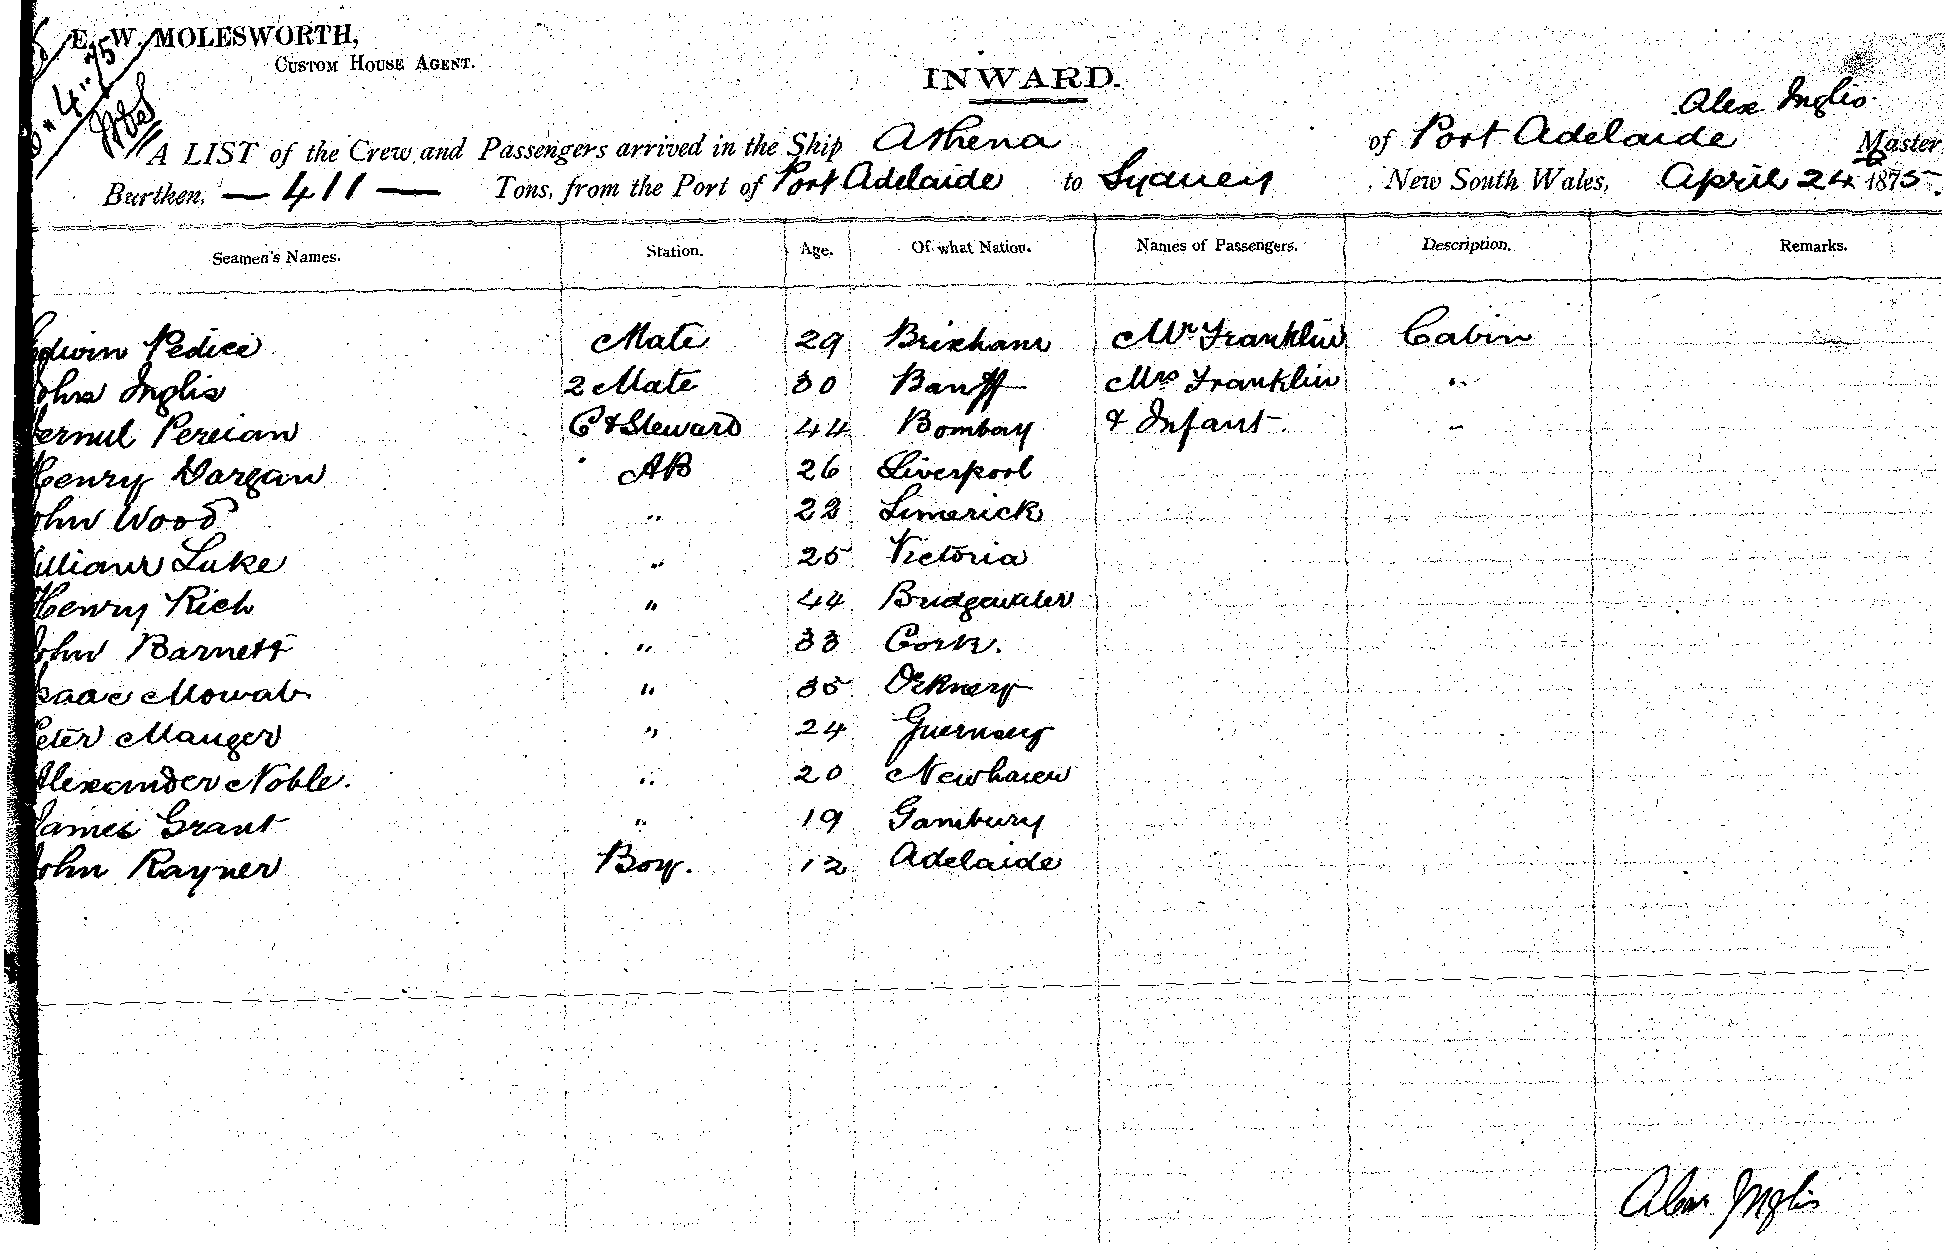 E. W. MOLESWORTH,
CUSTOM HOUSE AGENT.
INWARD.
Alex Inglis
A LIST of the Crew and Passengers arrived in the Ship Athena of Port Adelaide Master
Burthen, — 411 — Tons, from the Port of Port Adelaide to Sydney New South Wales, April 24 1875.
Seamen's Names. Station. Age. Of what Nation. Names of Passengers. Description. Remarks.
Edwin Pedice Mate 29 Brixham Mr Franklin Cabin
John Inglis 2 Mate 30 Banff Mrs Franklin "
Pereian C & Steward 44 Bombay & Infant "
Henry Dargan AB 26 Liverpool
John Wood " 22 Limerick
William Luke " 25 Victoria
Henry Rich " 44 Bridgewater
John Barnett " 33 Cork.
Isaac Mowat " 35 Orkney
Peter Mauger " 24 Guernsey
Alexander Noble. " 20 Newhaven
James Grant " 19
John Rayner Boy. 12 Adelaide
Alex Inglis